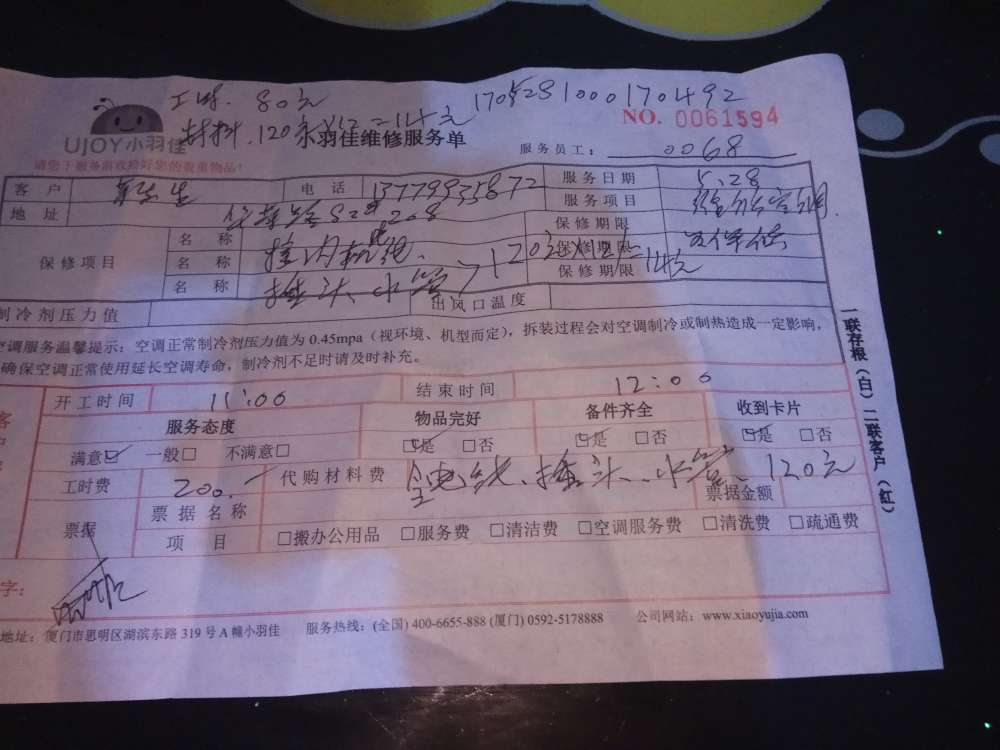 工时. 80元
1705281000170492
材料. 120
NO. 0061594
UJOY小羽佳
小羽佳维修服务单
服务员工： 0068
请您于服务前收捡好您的贵重物品！
客 户 生 电 话 13779935872 服务日期 5.28
地 址 208 服务项目 空调
保修项目 名 称 保修期限
名 称 接内机 保修期限
名 称 插头、水管 120元 保修期限
制冷剂压力值 出风口温度
空调服务温馨提示：空调正常制冷剂压力值为 0.45mpa（视环境、机型而定），拆装过程会对空调制冷或制热造成一定影响，
确保空调正常使用延长空调寿命，制冷剂不足时请及时补充。
开工时间 11:00 结束时间 12:00
服务态度 物品完好 备件齐全 收到卡片
满意☑ 一般□ 不满意□ ☑是 □否 ☑是 □否 ☑是 □否
工时费 200. 代购材料费 电线、插头、水管、120元
票据 票据名称 票据金额
项 目 □搬办公用品 □服务费 □清洁费 □空调服务费 □清洗费 □疏通费
字：
地址：厦门市思明区湖滨东路 319 号 A 幢小羽佳 服务热线：(全国) 400-6655-888 (厦门) 0592-5178888 公司网站：www.xiaoyujia.com
一联存根（白）二联客户（红）